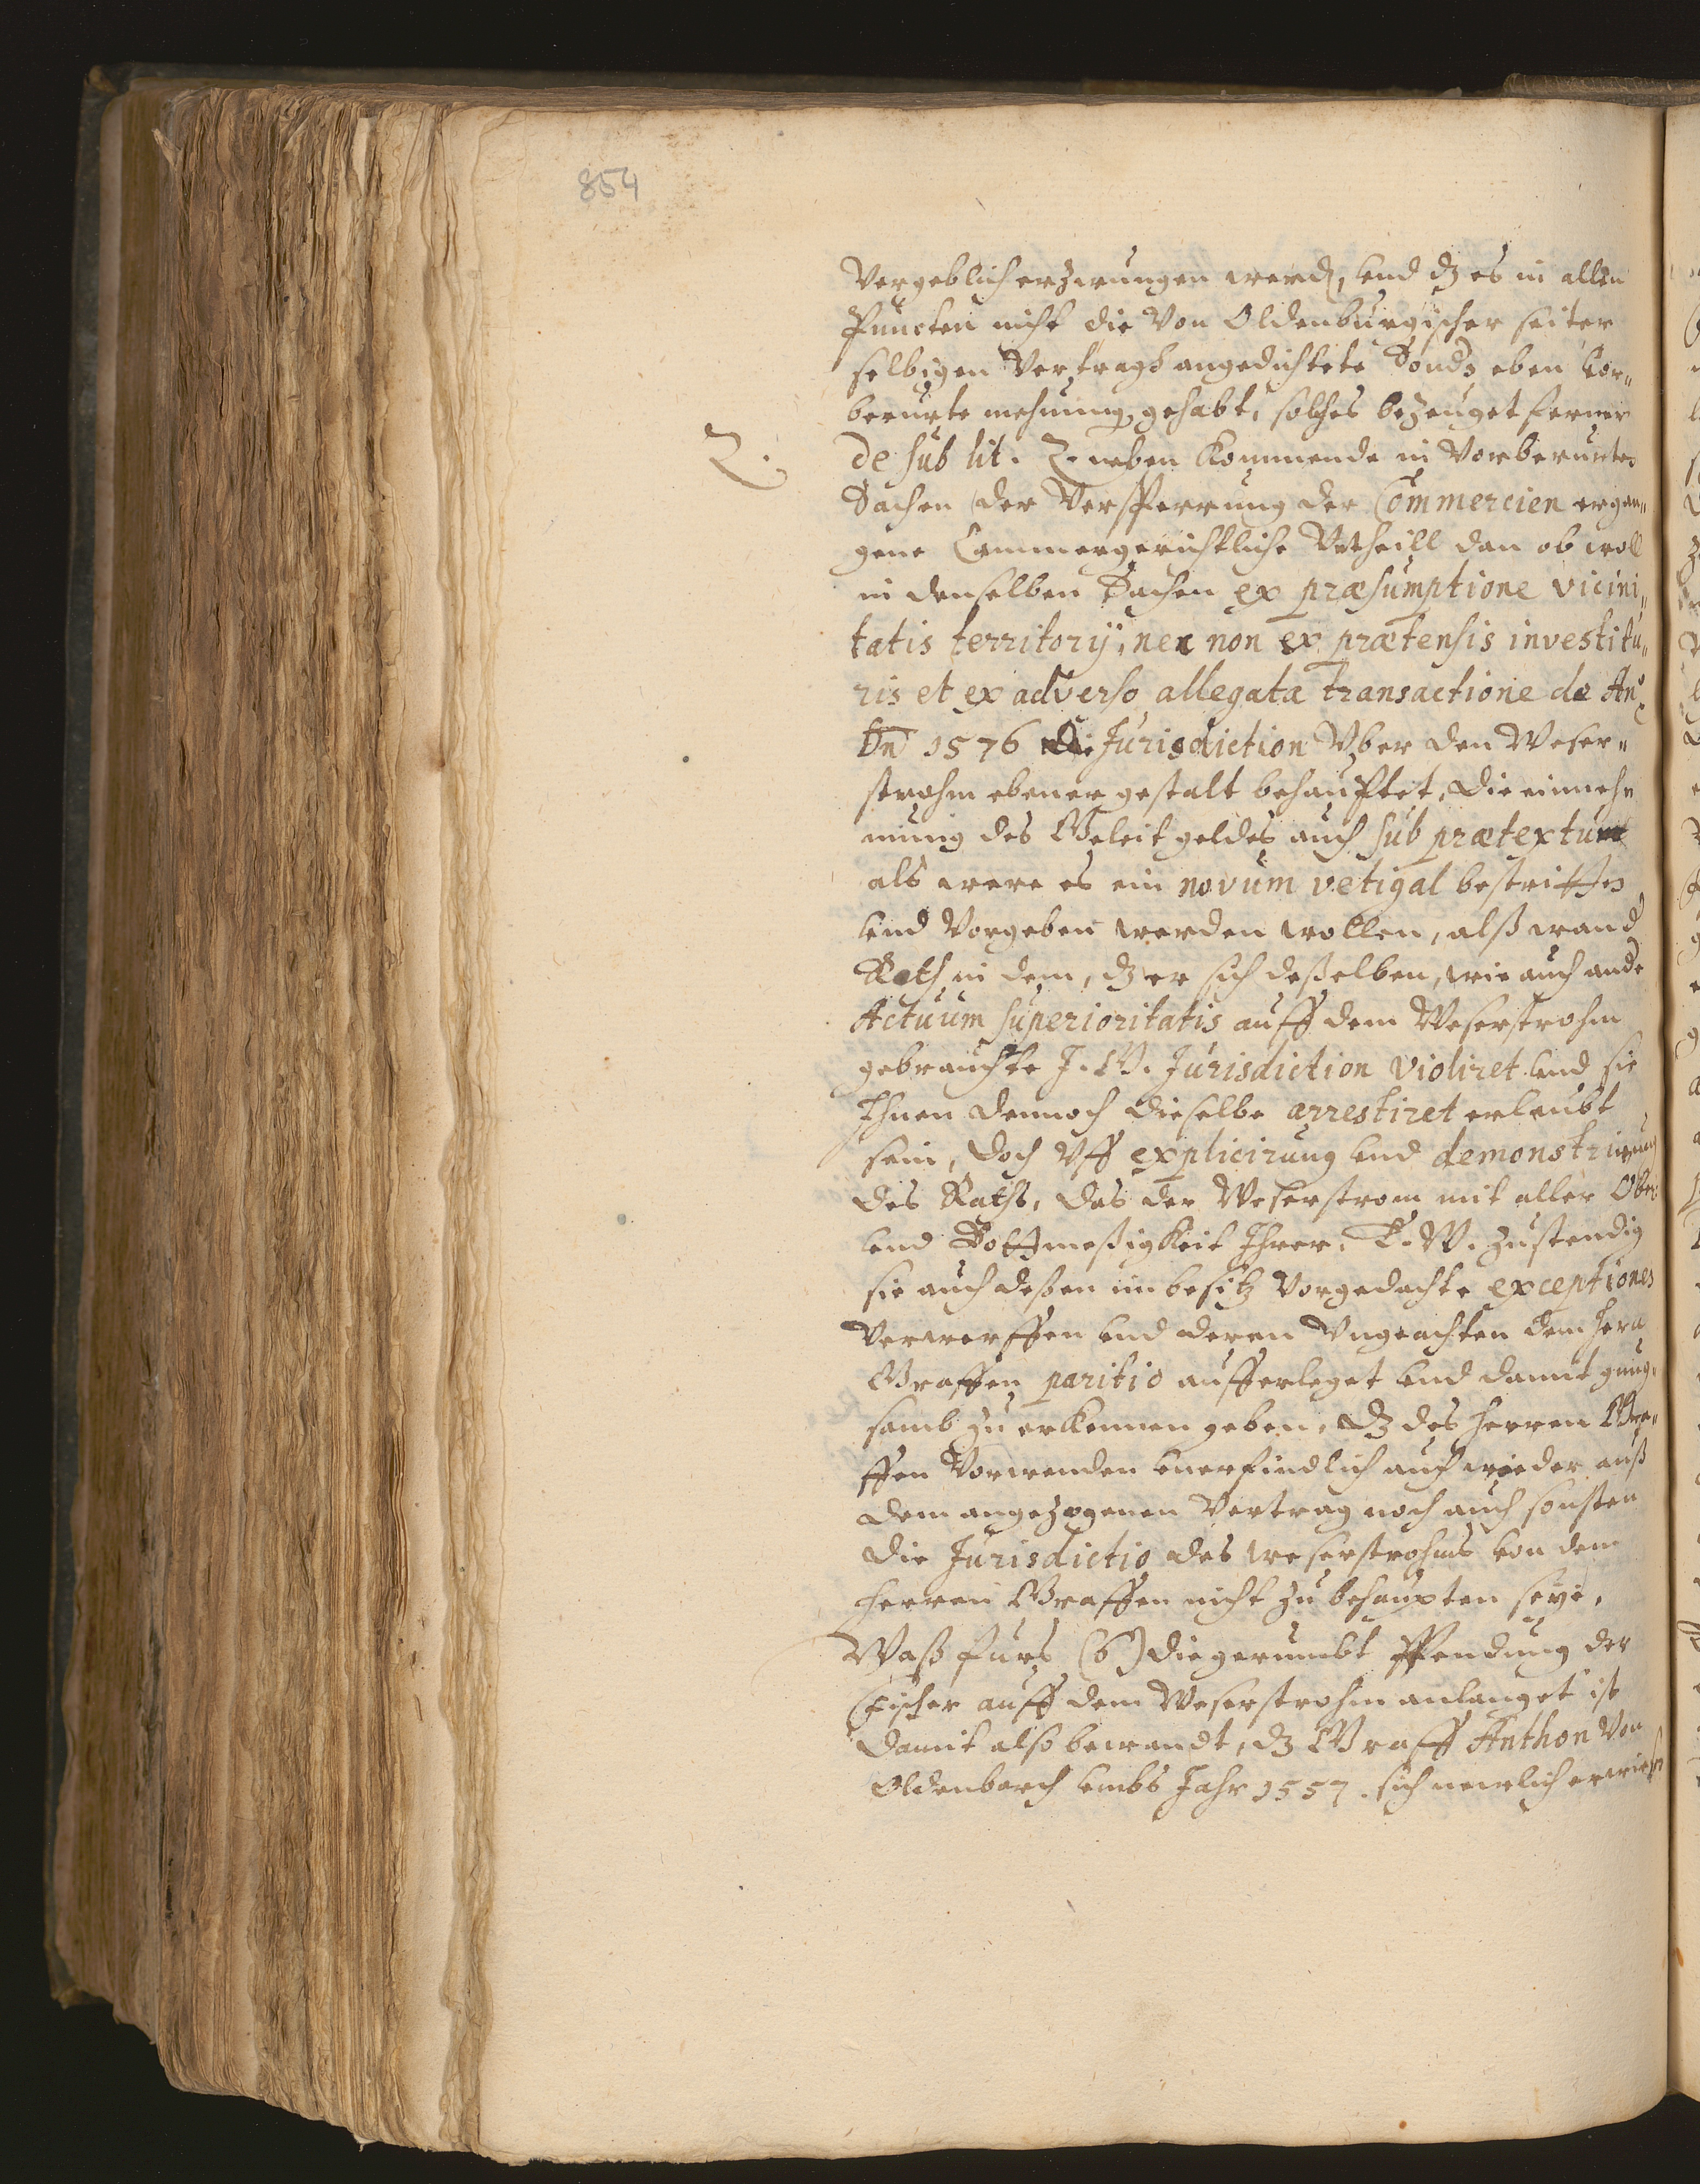 854
Vergeblich erzwungen werd, und dz es in allen
Puncten nicht die Von Oldenburgischer seiten
selbigen Vertragh angedichtete Sonds eben vor„
berurte mehnung gehabt, solches bezeuget ferner
Z.
de sub lit. Z. neben kommende in Vorberurten
Sachen der Versperrung der Commercien ergan„
gene Cammergerichtliche Urtheill dan ob woll
in denselben Sachen ex præsumptione vicini„
tatis territorÿ, nec non ex prætensis investitu„
ris et ex adverso allegata transactione de Anº
1576 die Jurisdiction Vber den Weser„
strohm ebener gestalt behauptet, die einneh
mung des Geleit geldes auch sub prætextu
als were es ein novum vetigal bestritten
und Vorgeben werden wollen, alß wand
Rath in dem, dz er sich deßelben, wie auch ande
Actuum superioritatis auff dem Weserstrohm
gebrauchte J. G. Jurisdiction violiret und sie
Ihnen dennoch dieselbe arrestiret erleubt
sein, doch Vff explicirung und demonstrirung
des Raths, das der Weserstrom mit aller Ober
und Bottmeßigkeit Ihrer. zustendig
sie auch deßen im besitz Vorgedachte exceptiones
Verworffen und deren Vngeachten dem hern
Graffen paritio aufferleget und damit gnug„
samb zu erkennen geben, dz des Herren Gra„
ffen Vorwenden unerfindlich auch wieder auß
dem angezogenen Vertrag noch auch sonsten
die Jurisdictio des weserstrohms von dem
Herren Graffen nicht zu behaupten seye,
Waß furs (6) die gerumbt Pfendung der
Fischer auff dem Weserstrohm anlanget ist
damit also bewandt, dz Graff Anthon Von
Oldenborch umbs Jahr 1557. sich newlich